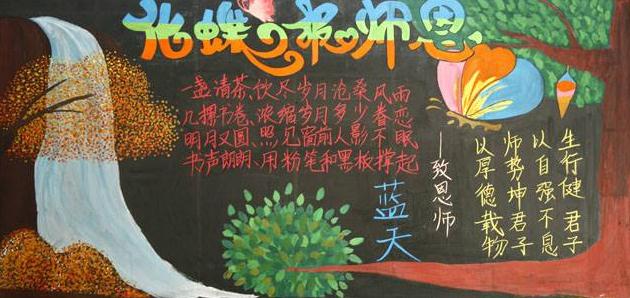 化蝶日报师恩
一盏清茶、饮尽岁月沧桑风雨
几摞书卷、浓缩岁月多少眷恋
明月又圆、照见窗前人影不眠
书声朗朗、用粉笔和黑板撑起
蓝天
—致恩师
生行健 君子
以自强不息
师势坤君子
以厚德载物